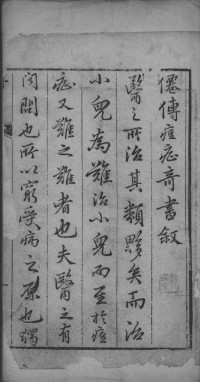 僊傳痘症奇書敘
醫之所治其類夥矣而治
小兒為難治小兒而至於痘
症又難之難者也夫醫之有
問也所以窮受病之原也